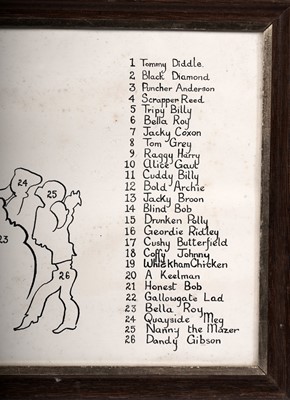 1 Tommy Diddle.
2 Black Diamond
3 Puncher Anderson
4 Scrapper Reed
5 Tripy Billy
6 Bella Roy
7 Jacky Coxon
8 Tom Grey
9 Raggy Harry
10 Alice Gaut
11 Cuddy Billy
12 Bold Archie
13 Jacky Broon
14 Blind Bob
15 Drunken Polly
16 Geordie Ridley
17 Cushy Butterfield
18 Coffy Johnny
19 Whickham Chicken
20 A Keelman
21 Honest Bob
22 Gallowgate Lad
23 Bella Roy
24 Quayside Meg
25 Nanny the Mazer
26 Dandy Gibson
24
25
23
26